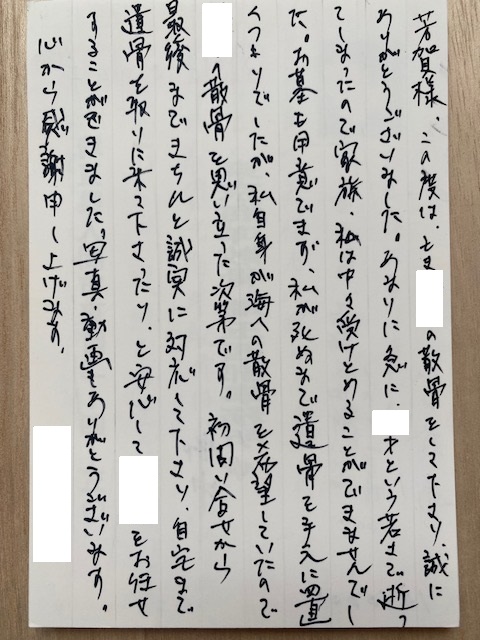 若賀様、この度は、
の散骨をして下さり、誠に
ありがとうございました。あまりに急に、
才という若さで逝っ
てしまったので家族、私は中々受けとめることができませんでし
た。お墓も用意できますが、私が死ぬまで遺骨を手元に置
くつもりでしたが、私自身が海への散骨を希望していたので
の散骨を思い立った次第です。初回問い合せから
最後まできちんと誠実に対応して下さり、自宅まで
遺骨を取りに来て下さったり、と安心して
をお任せ
することができました。写真、動画もありがとうございます。
心から感謝申し上げます。